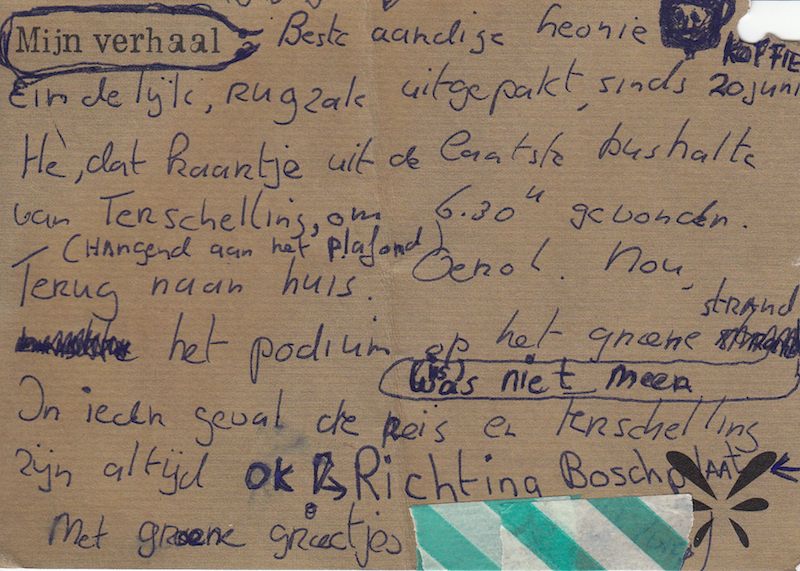 Mijn verhaal Beste aandige heonie
KOFFIE
Eindelijk, Rugzak uitgepakt, sinds 20 juni
Hè, dat kaartje uit de laatste bushalte
van Terschelling, om 6.30 u gevonden.
(Hangend aan het plafond)
Terug naar huis. Oerol. Nou,
strand
het podium op het groene
(is) was niet meer
In ieder geval de reis en Terschelling
zijn altijd OK Richting Boschplaat
Met groene groetjes